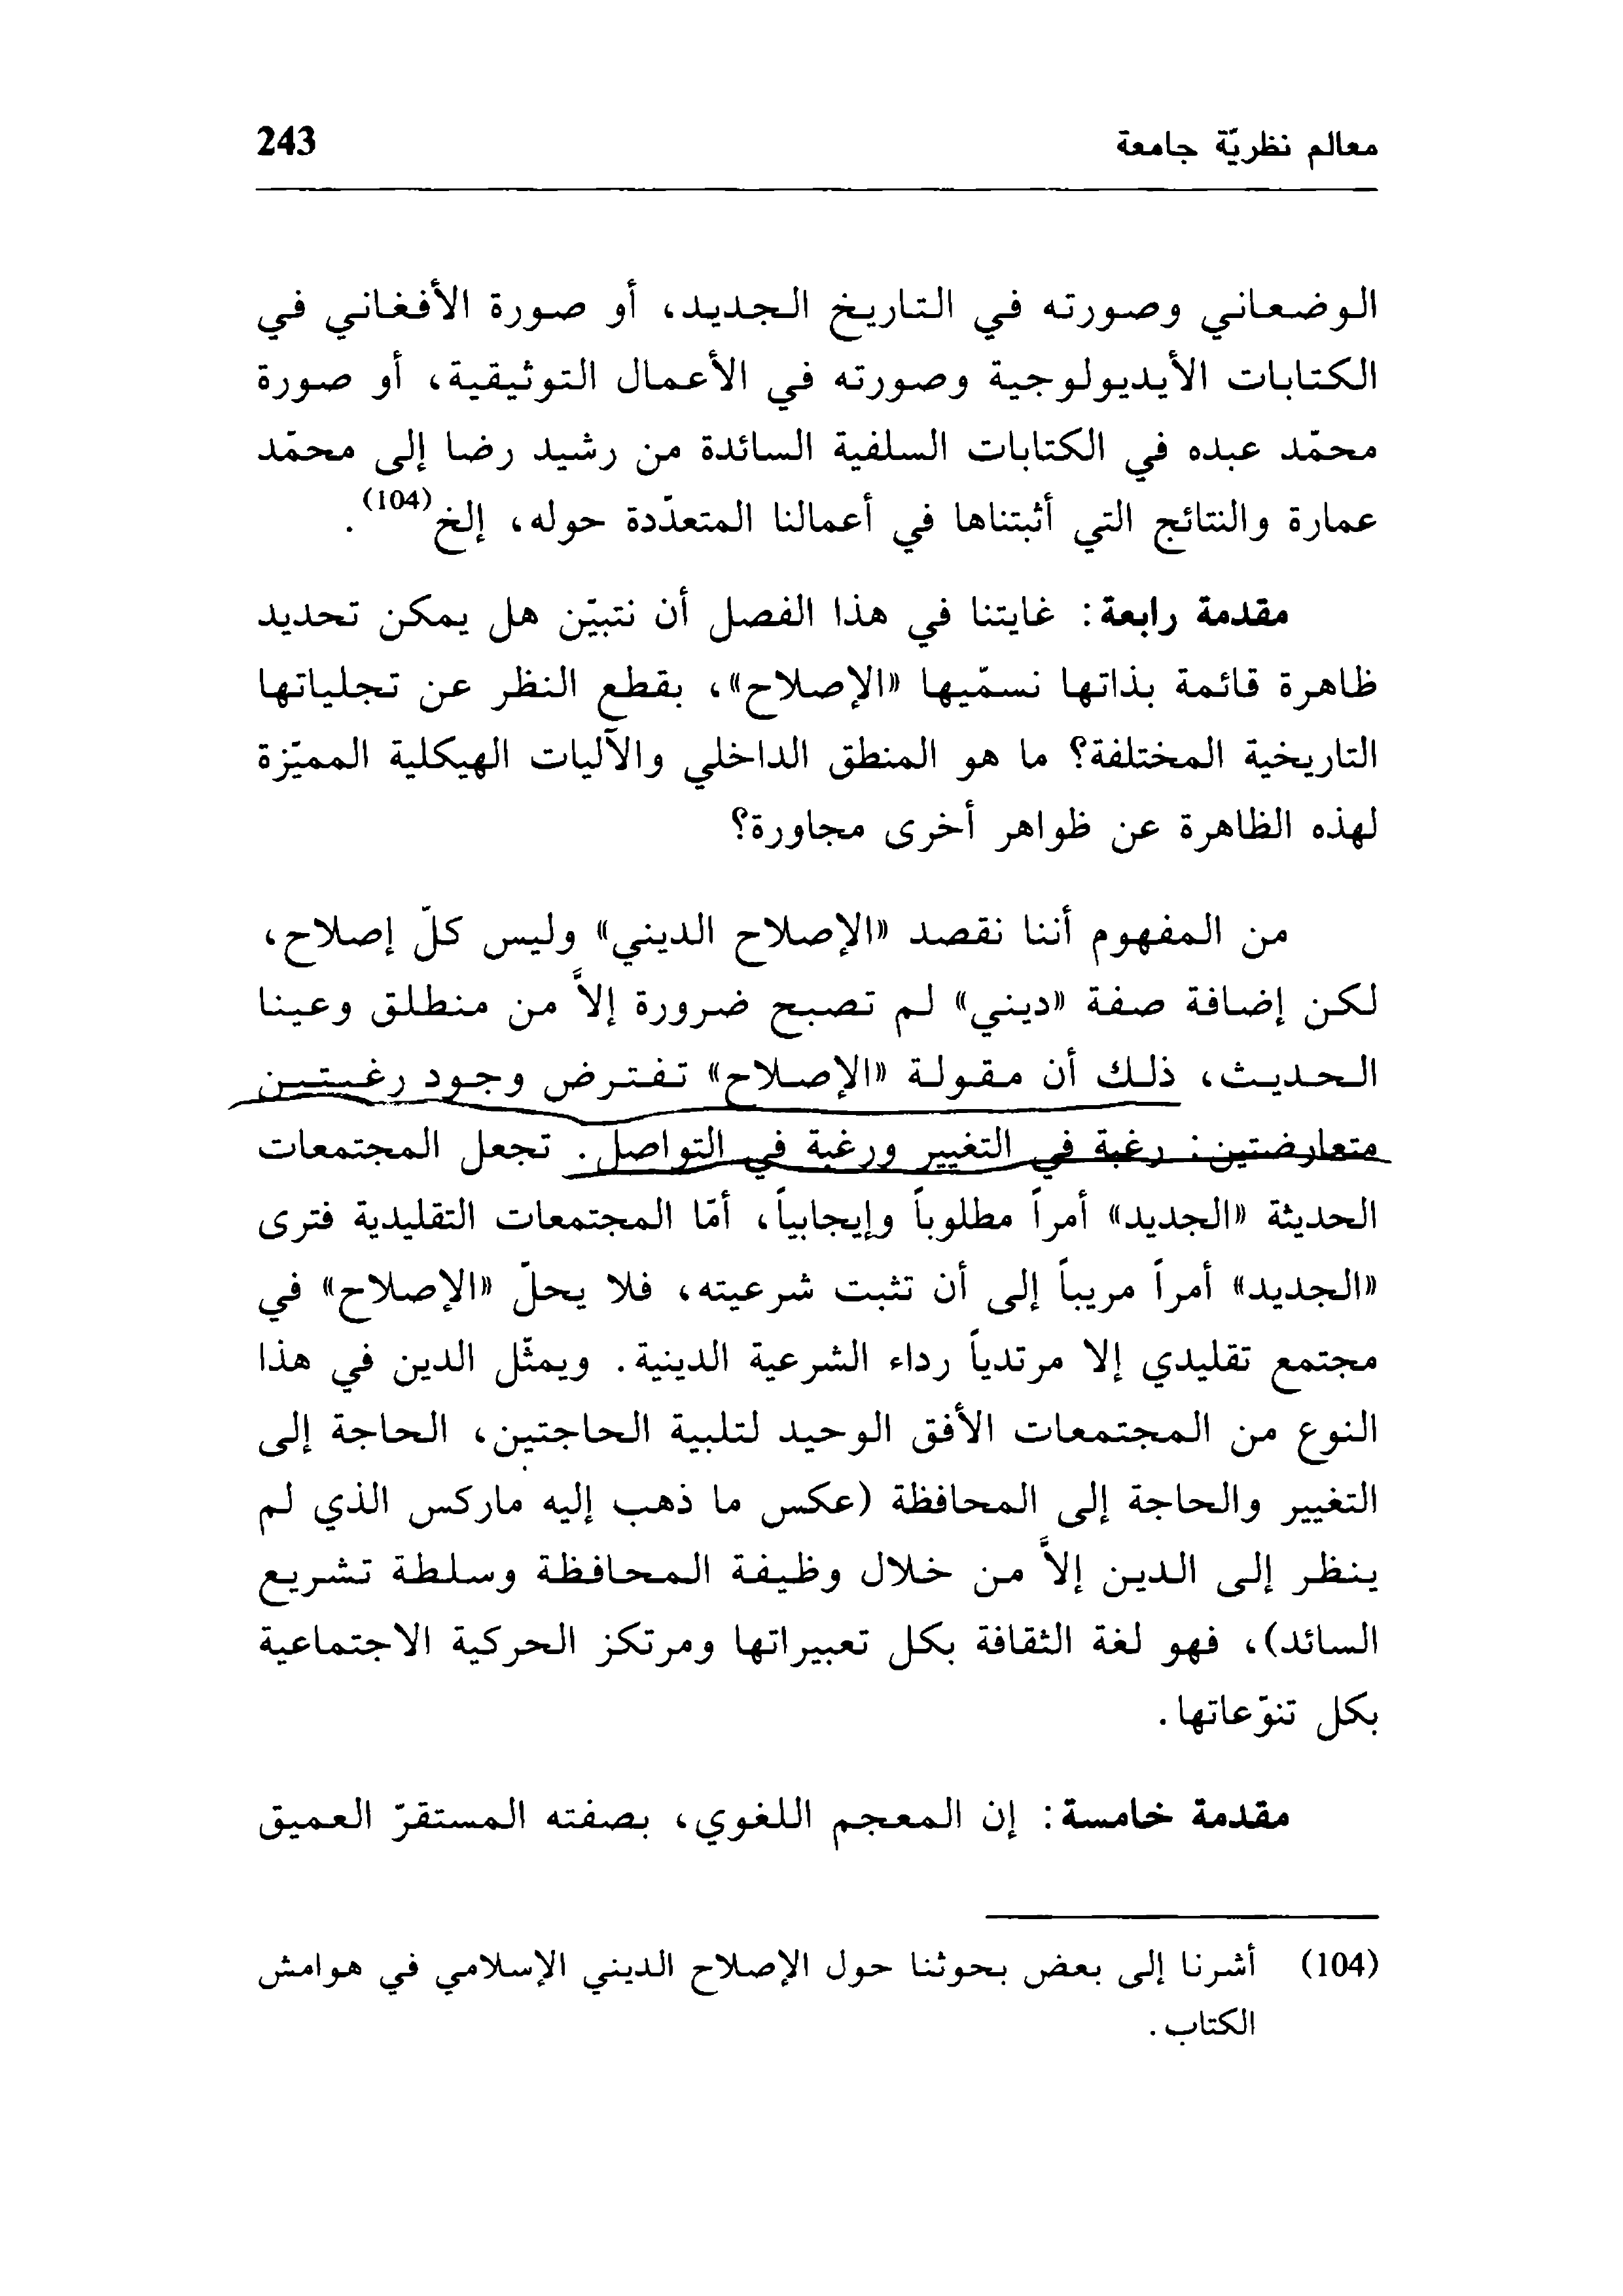 معالم نظريّة جامعة 243
الوضعاني وصورته في التاريخ الجديد، أو صورة الأفغاني في
الكتابات الأيديولوجية وصورته في الأعمال التوثيقية، أو صورة
محمّد عبده في الكتابات السلفية السائدة من رشيد رضا إلى محمّد
عمارة والنتائج التي أثبتناها في أعمالنا المتعدّدة حوله، إلخ(104).
مقدمة رابعة: غايتنا في هذا الفصل أن نتبيّن هل يمكن تحديد
ظاهرة قائمة بذاتها نسمّيها «الإصلاح»، بقطع النظر عن تجلياتها
التاريخية المختلفة؟ ما هو المنطق الداخلي والآليات الهيكلية المميّزة
لهذه الظاهرة عن ظواهر أخرى مجاورة؟
من المفهوم أننا نقصد «الإصلاح الديني» وليس كلّ إصلاح،
لكن إضافة صفة «ديني» لم تصبح ضرورة إلاّ من منطلق وعينا
الحديث، ذلك أن مقولة «الإصلاح» تفترض وجود رغبتين
متعارضتين: رغبة في التغيير ورغبة في التواصل. تجعل المجتمعات
الحديثة «الجديد» أمراً مطلوباً وإيجابياً، أمّا المجتمعات التقليدية فترى
«الجديد» أمراً مريباً إلى أن تثبت شرعيته، فلا يحلّ «الإصلاح» في
مجتمع تقليدي إلا مرتدياً رداء الشرعية الدينية. ويمثّل الدين في هذا
النوع من المجتمعات الأفق الوحيد لتلبية الحاجتين، الحاجة إلى
التغيير والحاجة إلى المحافظة (عكس ما ذهب إليه ماركس الذي لم
ينظر إلى الدين إلاّ من خلال وظيفة المحافظة وسلطة تشريع
السائد)، فهو لغة الثقافة بكل تعبيراتها ومرتكز الحركية الاجتماعية
بكل تنوّعاتها.
مقدمة خامسة: إن المعجم اللغوي، بصفته المستقرّ العميق
(104) أشرنا إلى بعض بحوثنا حول الإصلاح الديني الإسلامي في هوامش
الكتاب.